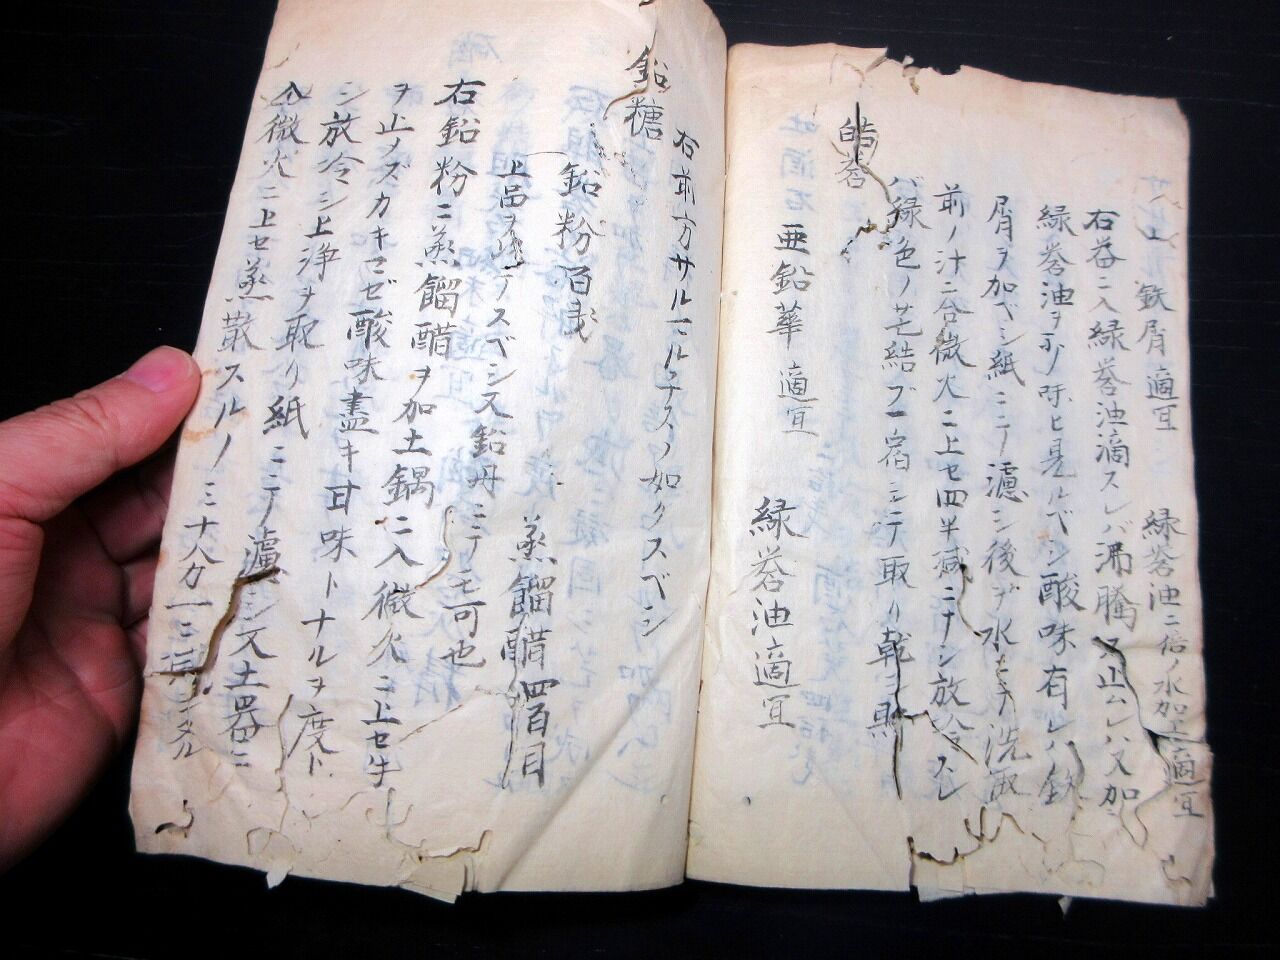 鉄屑 適宜 緑礬油 二倍ノ水加 適宜
右器ニ入緑礬油滴スレバ沸騰ス止ムレハ又加
緑礬油ヲ少 ヒ見ルベシ酸味有レハ鉄
屑ヲ加ベシ紙ニテ濾シ後チ水ヒテ洗取
前ノ汁ニ合微火ニ上セ四半減ニテシ放冷スレ
バ緑色ノ芒結ブ一宿シテ取リ乾シ貯
皓礬
亜鉛華 適宜 緑礬油適宜
右前方サル ルチスノ如クスベシ
鉛糖
鉛粉百戔 蒸餾醋四百目
上品ヲ テスベシ又鉛丹ニテモ可也
右鉛粉ニ蒸餾醋ヲ加土鍋ニ入微火ニ上セ牛
ヲ止ノズカキマゼ酸味盡キ甘味トナルヲ度ト
シ放冷シ上浄ヲ取リ紙ニテ濾シ又土器ニ
入微火ニ上セ蒸散スルノ三十八刀一ニ